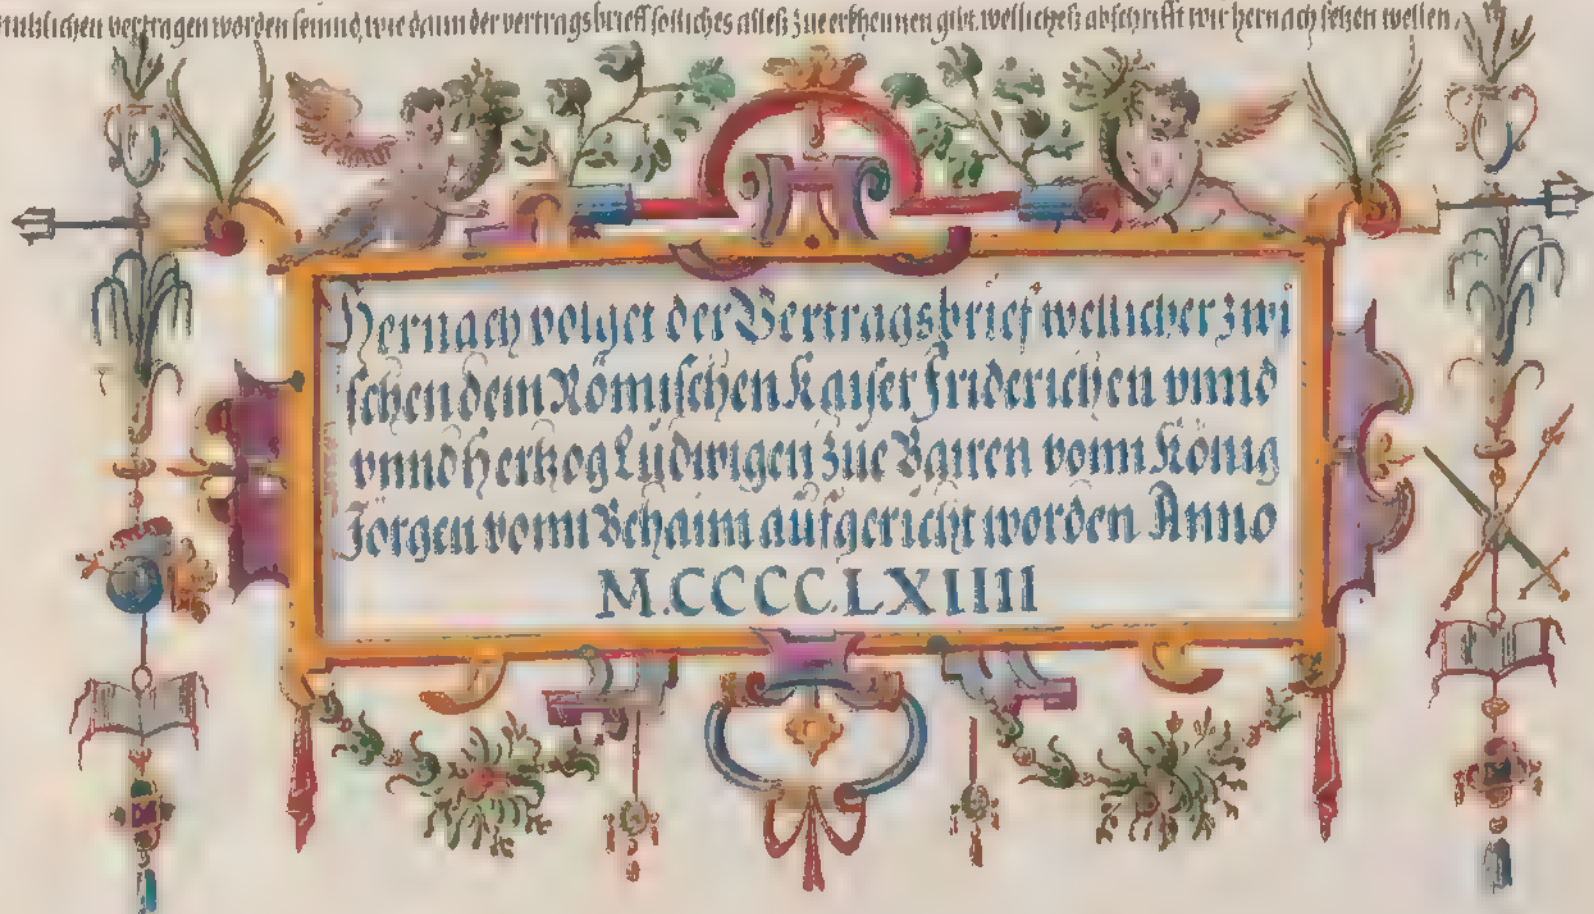 vertragen worden seinnd, wie dann der vertragsbrieff solliches alleß zue erkhennen gibt. welliches abschrifft wir hernach setzen wellen.
Hernach volget der Vertragsbrief wellicher zwi
schen dem Römischen Kayser Friderichen vnnd
vnnd Hertzog Ludwigen zue Bairen vom König
Jörgen vonn Behaim aufgericht worden Anno
M.CCCC.LXIIII